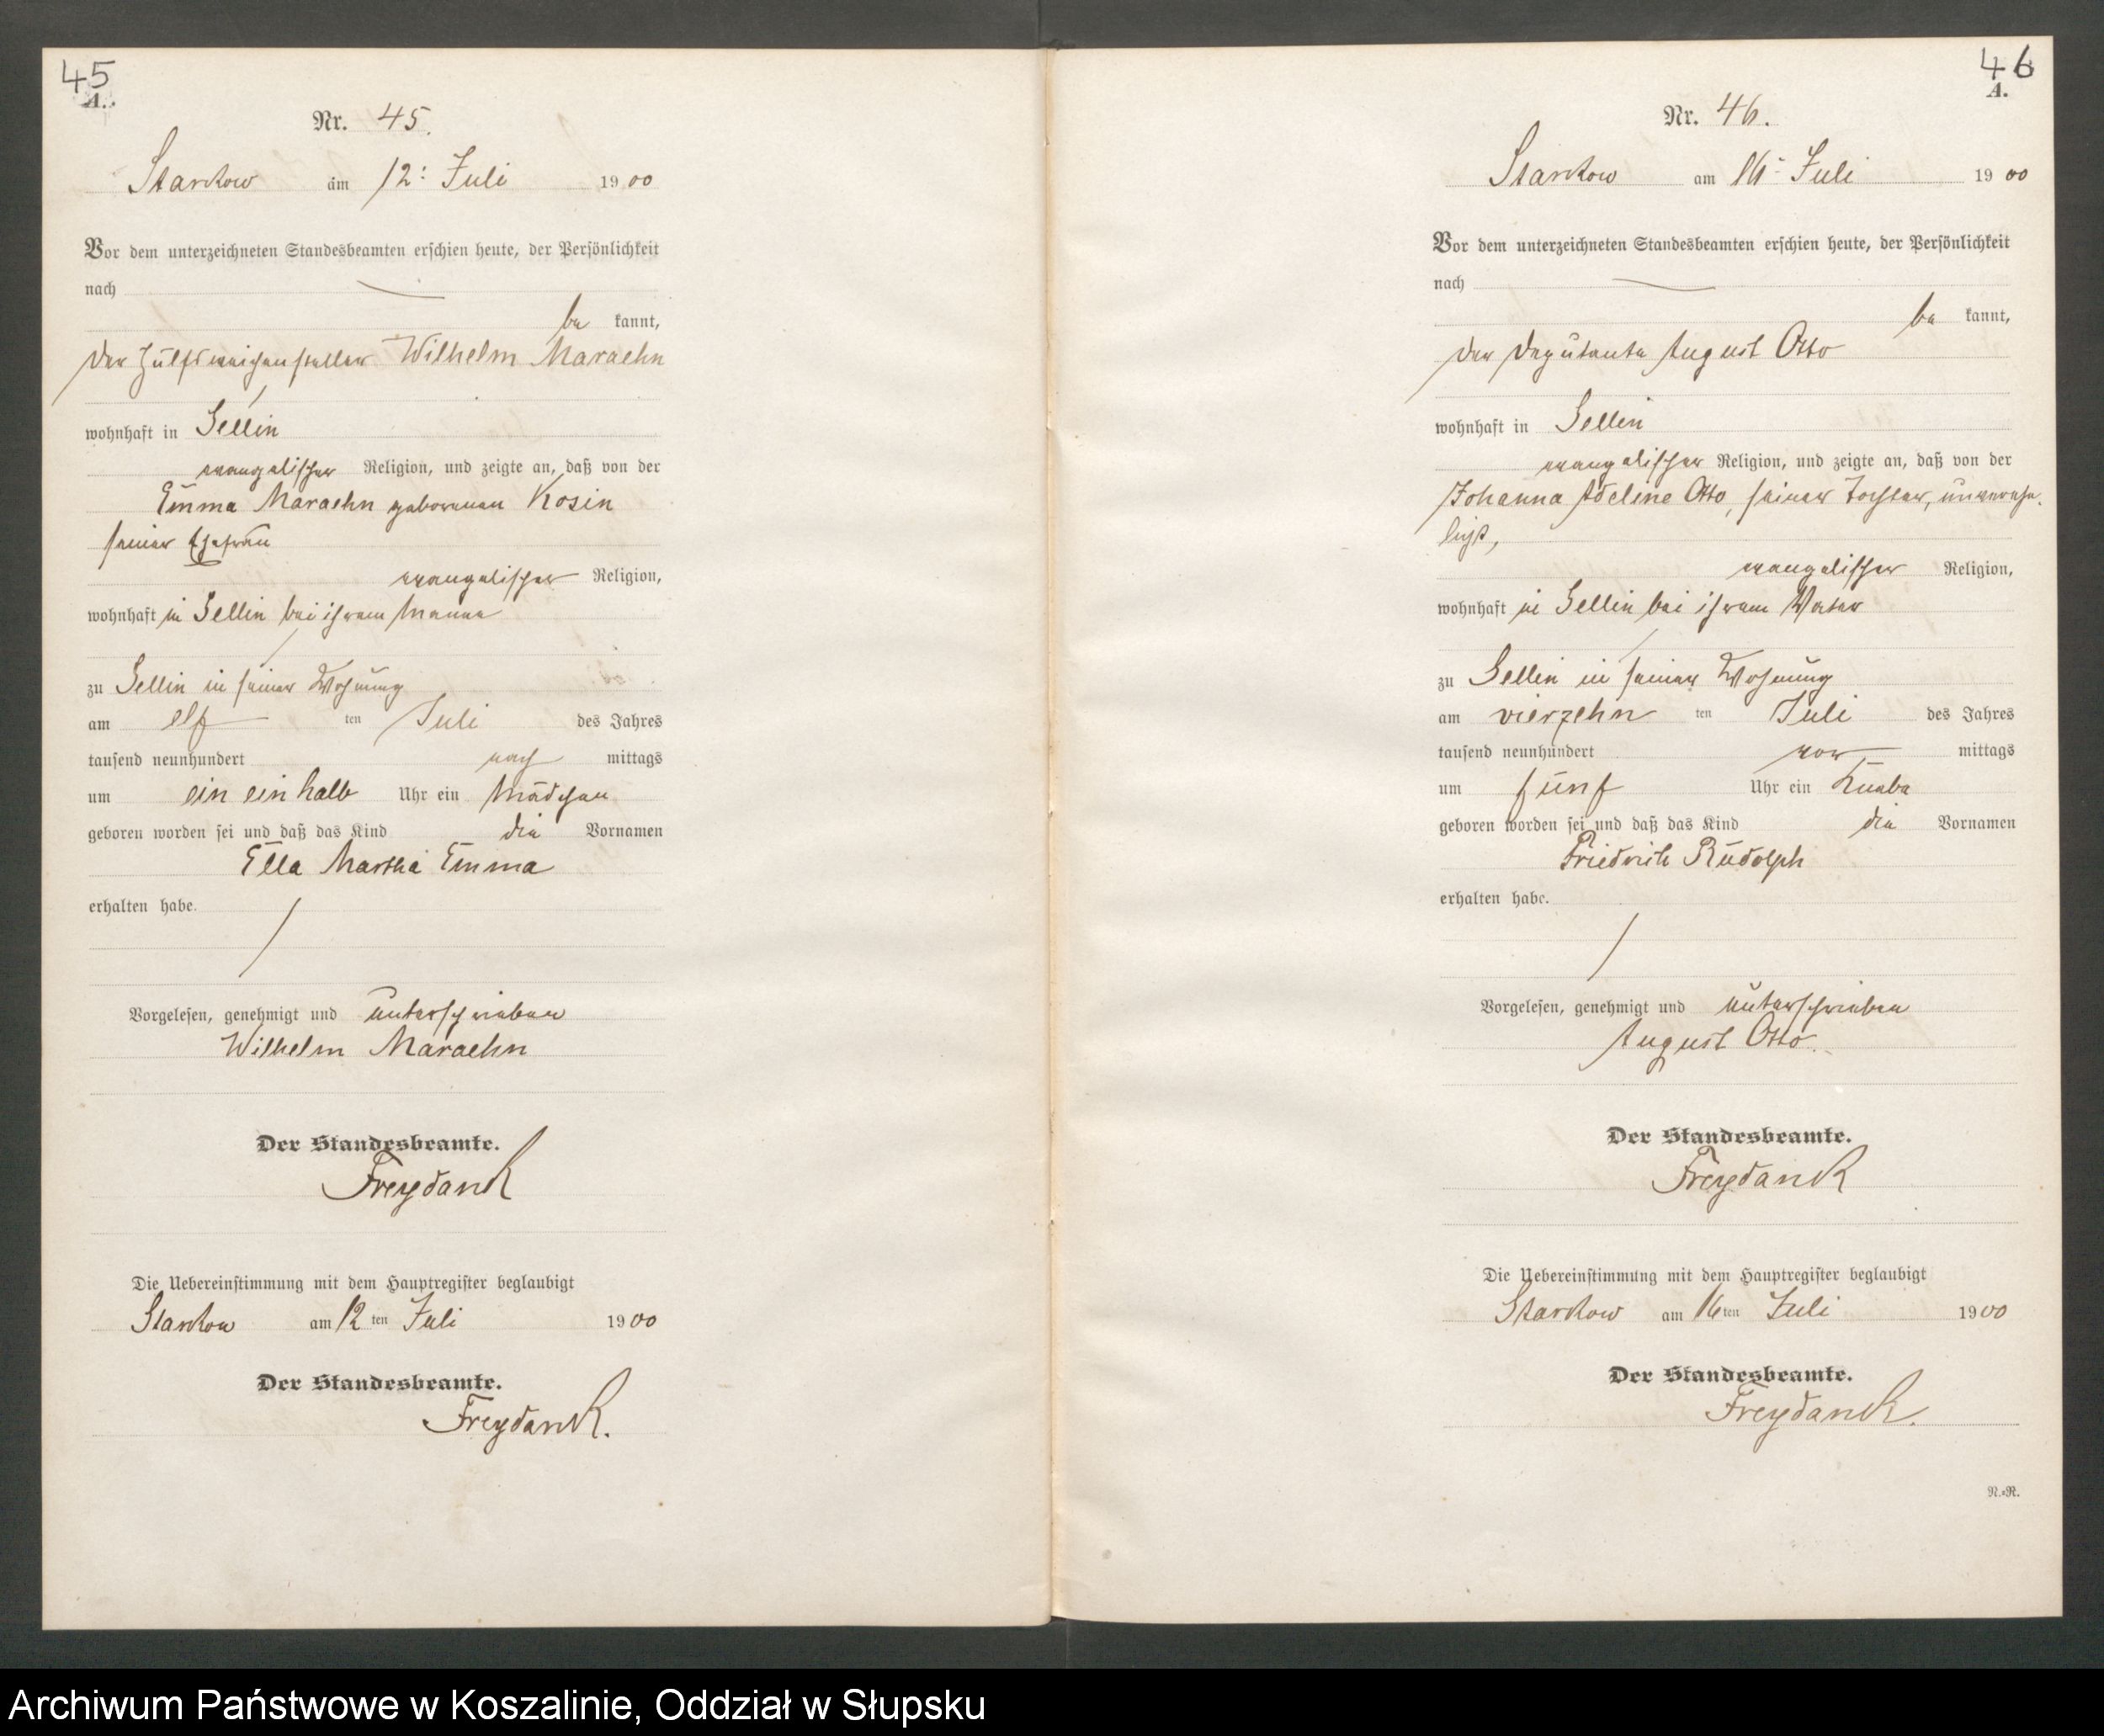 45
A.
Nr. 45.
Starckow am 12: Juli 1900
Vor dem unterzeichneten Standesbeamten erschien heute, der Persönlichkeit
nach
be kannt,
der Hülfsweichensteller Wilhelm Maraehn
wohnhaft in Sellin
evangelischer Religion, und zeigte an, daß von der
Emma Maraehn geborenen Kosin
seiner Ehefrau
evangelischer Religion,
wohnhaft in Sellin bei ihrem Manne
zu Sellin in seiner Wohnung
am elf ten Juli des Jahres
tausend neunhundert nach mittags
um ein einhalb Uhr ein Mädchen
geboren worden sei und daß das Kind die Vornamen
Ella Martha Emma
erhalten habe.
Vorgelesen, genehmigt und unterschrieben
Wilhelm Maraehn
Der Standesbeamte.
Freydanck
Die Uebereinstimmung mit dem Hauptregister beglaubigt
Starckow am 12 ten Juli 1900
Der Standesbeamte.
Freydanck.
46
A.
Nr. 46.
Starckow am 16- Juli 1900
Vor dem unterzeichneten Standesbeamten erschien heute, der Persönlichkeit
nach
be kannt,
der Deputante August Otto
wohnhaft in Sellin
evangelischer Religion, und zeigte an, daß von der
Johanna Adeline Otto, seiner Tochter, unverehe-
licht,
evangelischer Religion,
wohnhaft in Sellin bei ihrem Vater
zu Sellin in seiner Wohnung
am vierzehn ten Juli des Jahres
tausend neunhundert vor mittags
um fünf Uhr ein Knabe
geboren worden sei und daß das Kind die Vornamen
Friedrich Rudolph
erhalten habe.
Vorgelesen, genehmigt und unterschrieben
August Otto.
Der Standesbeamte.
Freydanck
Die Uebereinstimmung mit dem Hauptregister beglaubigt
Starckow am 16 ten Juli 1900
Der Standesbeamte.
Freydanck.
N.=R.
Archiwum Państwowe w Koszalinie, Oddział w Słupsku